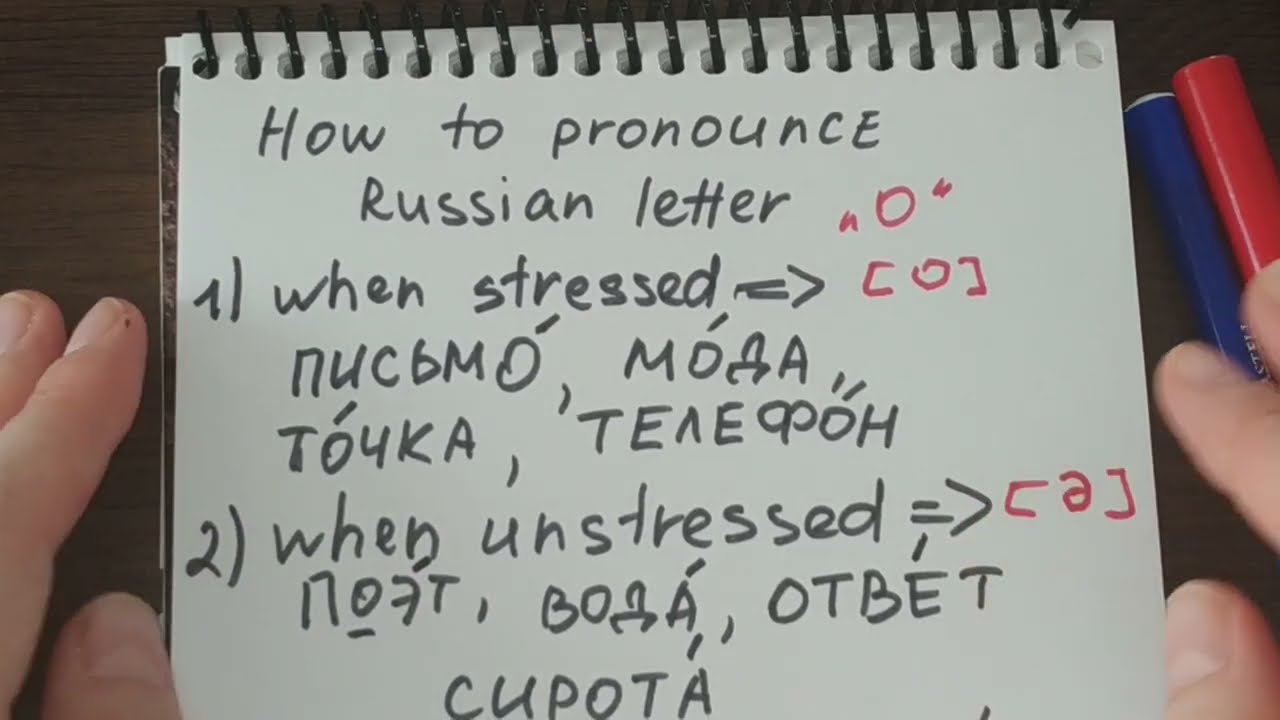 How to pronounce
Russian letter „O“
1) when stressed => [o]
ПИСЬМО́, МО́ДА,
ТО́ЧКА, ТЕЛЕФО́Н
2) when unstressed => [ə]
ПОЭ́Т, ВОДА́, ОТВЕ́Т
СИРОТА́